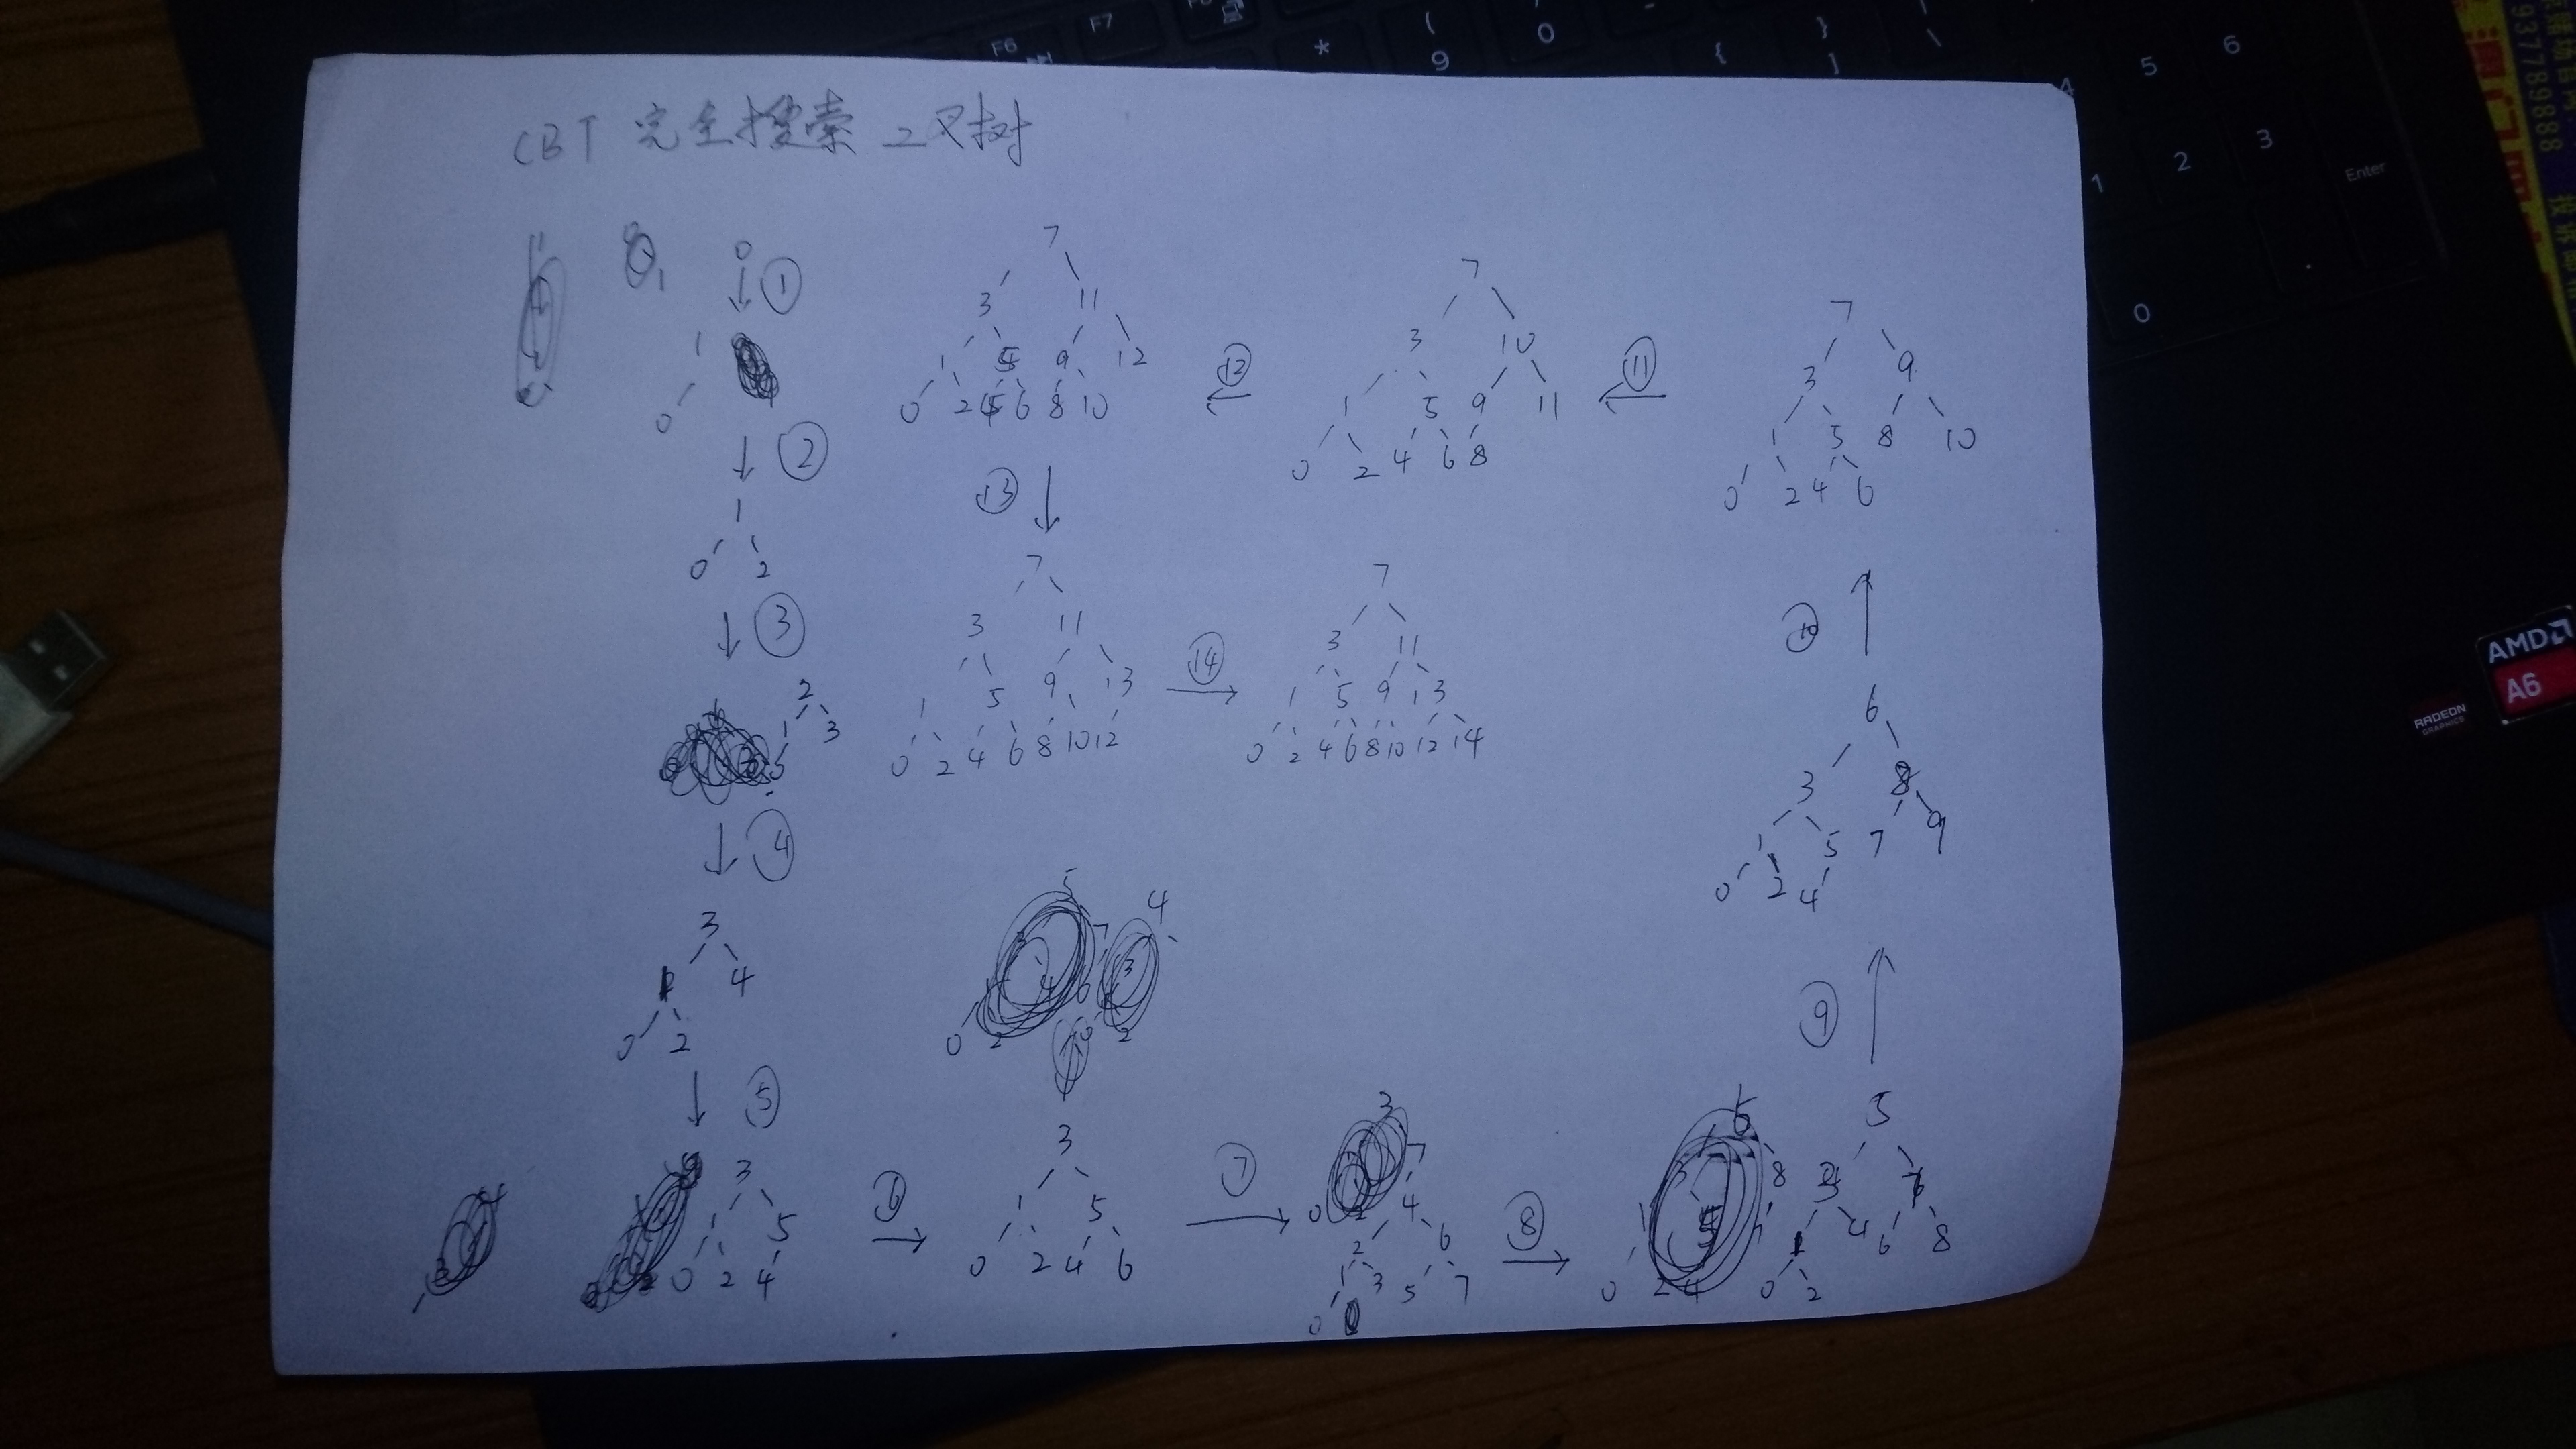 CBT 完全搜索二叉树
0
①
1
0
②
1
0 2
③
2
1 3
④
3
1 4
0 2
⑤
3
1 5
0 2 4
⑥
3
1 5
0 2 4 6
⑦
4
2 6
1 3 5 7
0
⑧
5
3 7
1 4 6 8
0 2
⑨
6
3 8
1 5 7 9
0 2 4
⑩
7
3 9
1 5 8 10
0 2 4 6
⑪
7
3 10
1 5 9 11
0 2 4 6 8
⑫
7
3 11
1 5 9 12
0 2 4 6 8 10
⑬
7
3 11
1 5 9 13
0 2 4 6 8 10 12
⑭
7
3 11
1 5 9 13
0 2 4 6 8 10 12 14
F6
F7
*
(
9
)
0
{
}
]
\
4
5
6
1
2
3
0
.
Enter
AMD
A6
RADEON
GRAPHICS
93778988